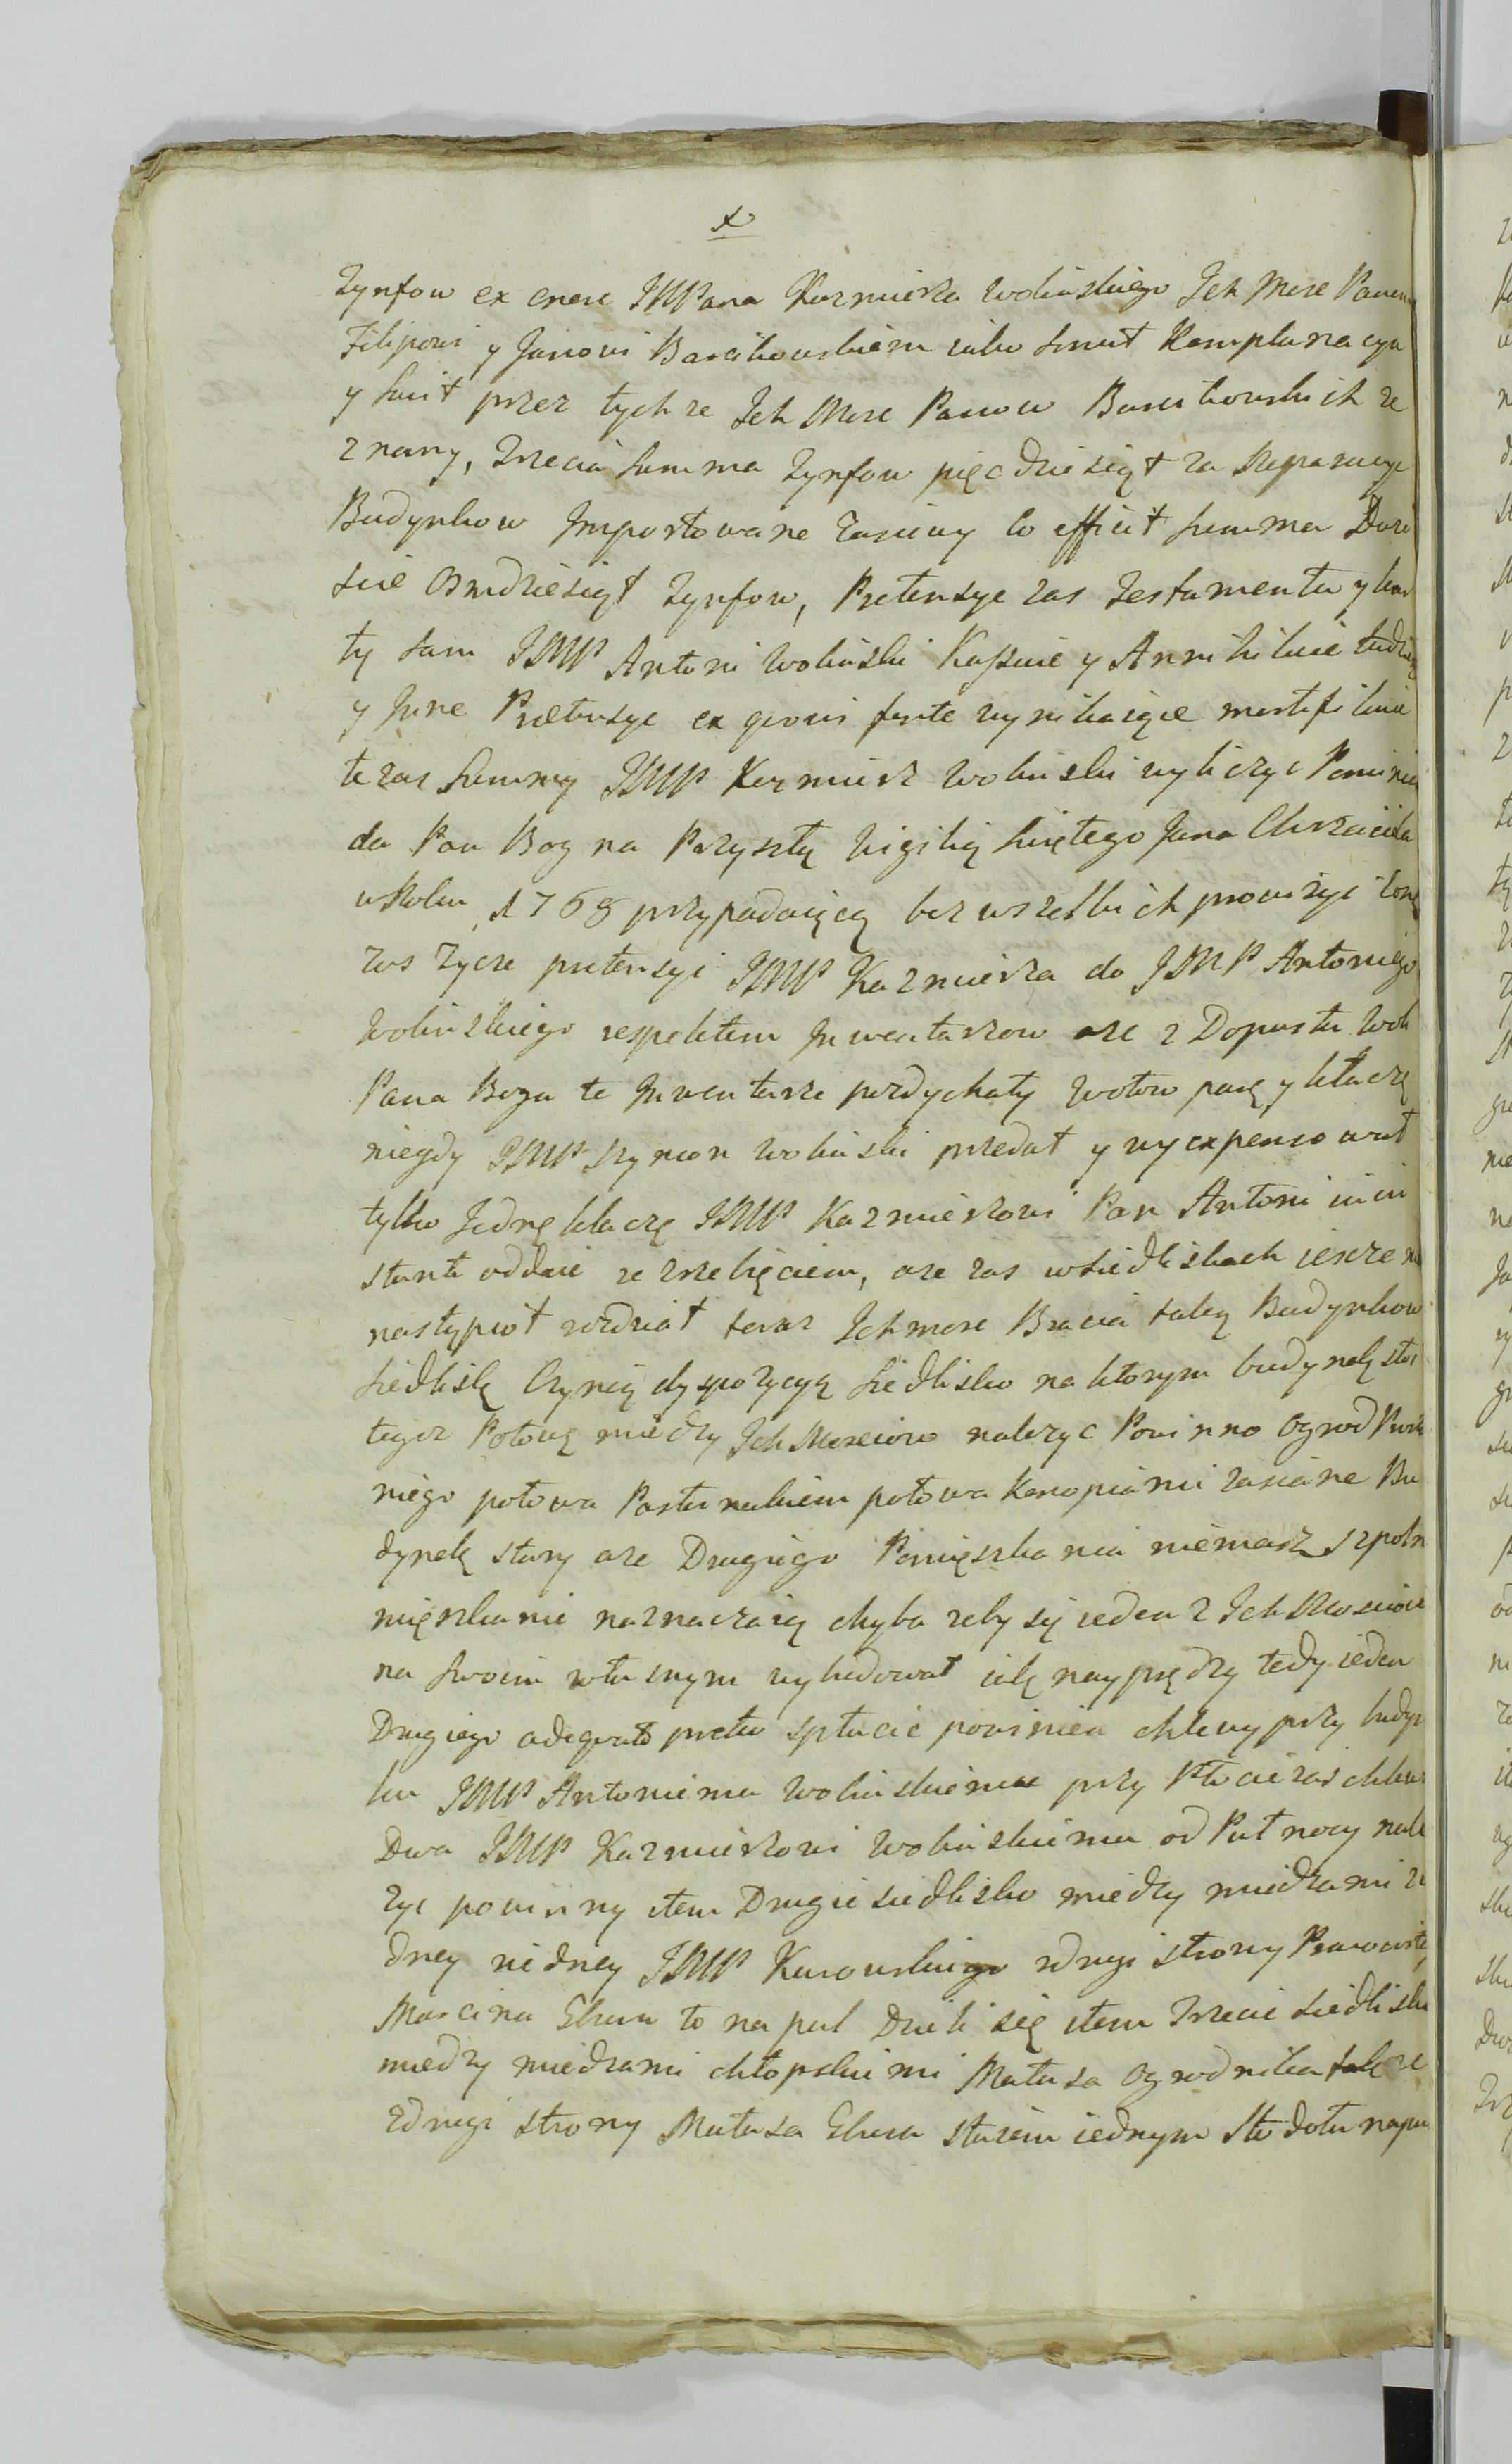 Tynfow ex cnere JMPana Kazmierza Wolinskiego Ich Mosc Panom
Filipowi y Janowi Barcikowskiem iako Komplanacya
y kwit przez tychze Ich Mosc Panow Barcikowskich ze
znany, Trzecia Summa Tynfow pięcdziesiąt za Reparacye
Budynkow Importowane to efficit summa Dwie
scie Osmdziesiąt Tynfow, Pretensye zas Testamentu y kar
ty sam JMP Antoni Wolinski Kassuie y Annihiluie tudziez
y Jnne Prætensye ex quovis fonte wynikaiące mortifikuie
te zas Summy JMP Kazmierz Wolinski wyliczyc Powinien
da Pan Bog na Przyszłą Wigilią Swiętego Jana Chrzciciela
w Roku 1768 przypadaiącą bez wszelkich prowizyi
zas Tycze pretensyi JMP Kazmierza do JMP Antoniego
Wolinskiego respektem Jnwentarzow aze z Dopustu Woli
Pana Boga te Jnwentarze pozdychały Wołow parę y kłaczę
niegdy JMP Szymon Wolinski przedał y wyexpensował
tylko Jednę kłaczę JMP Kazmierzowi Pan Antoni in in
stanti oddaie ze zrzebięciem, aze zas w siedliskach iescze nie
nastąpioł rozdział teraz Ichmosc Bracia taką Budynkow
Siedlisk Czynią dyspozycyą siedlisko na ktorym budynek stoi
tegoz Połową miedzy Ich Mosciow nalezyc Powinno Ogrod
niego połowa Pasternakiem połowa Konopiami zasiane Bu
dynek stary aze Drugiego Pomięszkania niemasz spoln
mięszkanie naznaczaią chyba zeby się ieden z Ich Mosciow
na swoim własnym wybudował iak nayprędzy tedy ieden
Drugiego adequato pretio spłacic powinien chlewy przy budyn
ku JMP Antoniemu Wolinskiemu przy Płocie zas chlewy
Dwa JMP Kazmierzowi Wolinskiemu od Pułnocy nale
zyc powinny item Drugie siedlisko miedzy miedzami ze
dney iedney JMP Kurowskiego zdrugi strony
Marcina to na puł Dzieli się item Trzecie siedlisko
miedzy miedzami chłopskiemi Matusa Ogrodnika także
zdrugi strony Matusa staiem iednym Stodoła napu